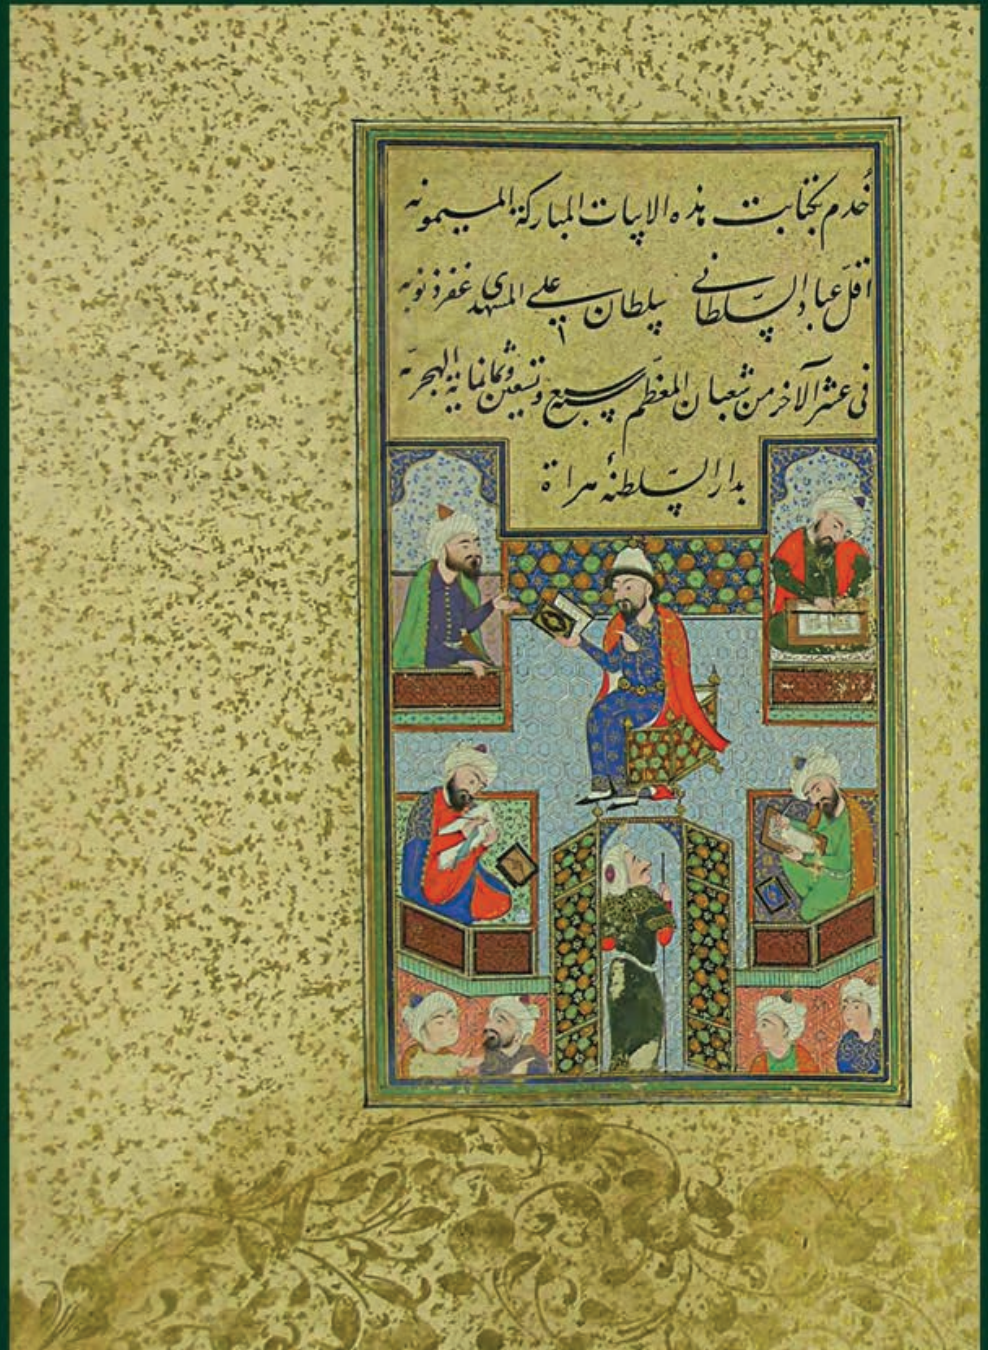 خُدم بکتابت هذه الابیات المبارکة المیمونه
اقلّ عباد السّلطانی سلطان علی المشهدی غفر ذنوبه
فی عشر الآخر من شعبان المعظّم سنه سبع و تسعین وثمانمایة الهجریّه
بدار السّلطنهٔ هراة